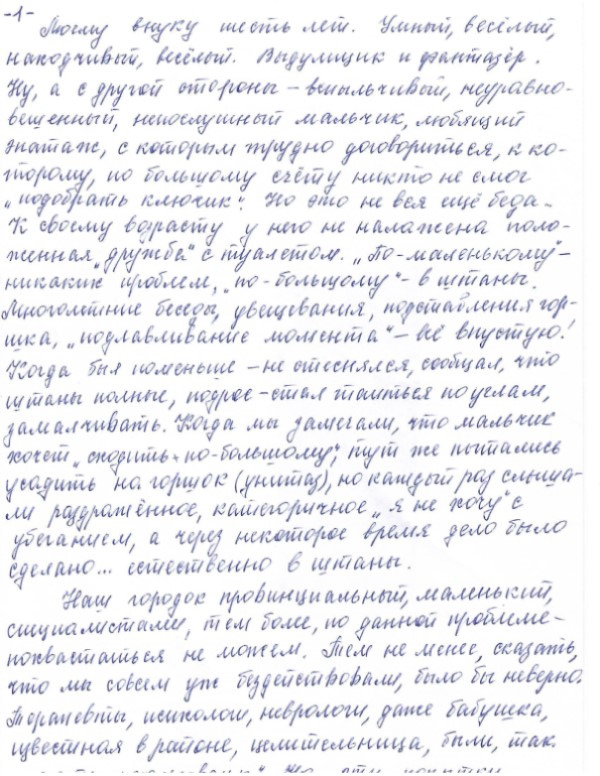 -1-
Моему внуку шесть лет. Умный, весёлый,
находчивый, весёлый. Выдумщик и фантазёр.
Ну, а с другой стороны – вспыльчивый, неуравно-
вешенный, непослушный мальчик, любящий
эпатаж, с которым трудно договориться, к ко-
торому, по большому счёту никто не смог
„подобрать ключик". Но это не вся ещё беда.
К своему возрасту у него не налажена поло-
женная „дружба" с туалетом. „По-маленькому" –
никаких проблем, „по-большому" – в штаны.
Многолетние беседы, увещевания, подставления гор-
шка, „подлавливание момента" – всё впустую!
Когда был поменьше – не стеснялся, сообщал, что
штаны полные, подрос – стал таиться по углам,
замалчивать. Когда мы замечали, что мальчик
хочет „сходить по-большому", тут же пытались
усадить на горшок (унитаз), но каждый раз слыша-
ли раздражённое, категоричное „я не хочу" с
убеганием, а через некоторое время дело было
сделано... естественно в штаны.
Наш городок провинциальный, маленький,
специалистами, тем более, по данной проблеме –
похвастаться не можем. Тем не менее, сказать,
что мы совсем уж бездействовали, было бы неверно.
Терапевты, психологи, неврологи, даже бабушка,
известная в районе, целительница, были, так